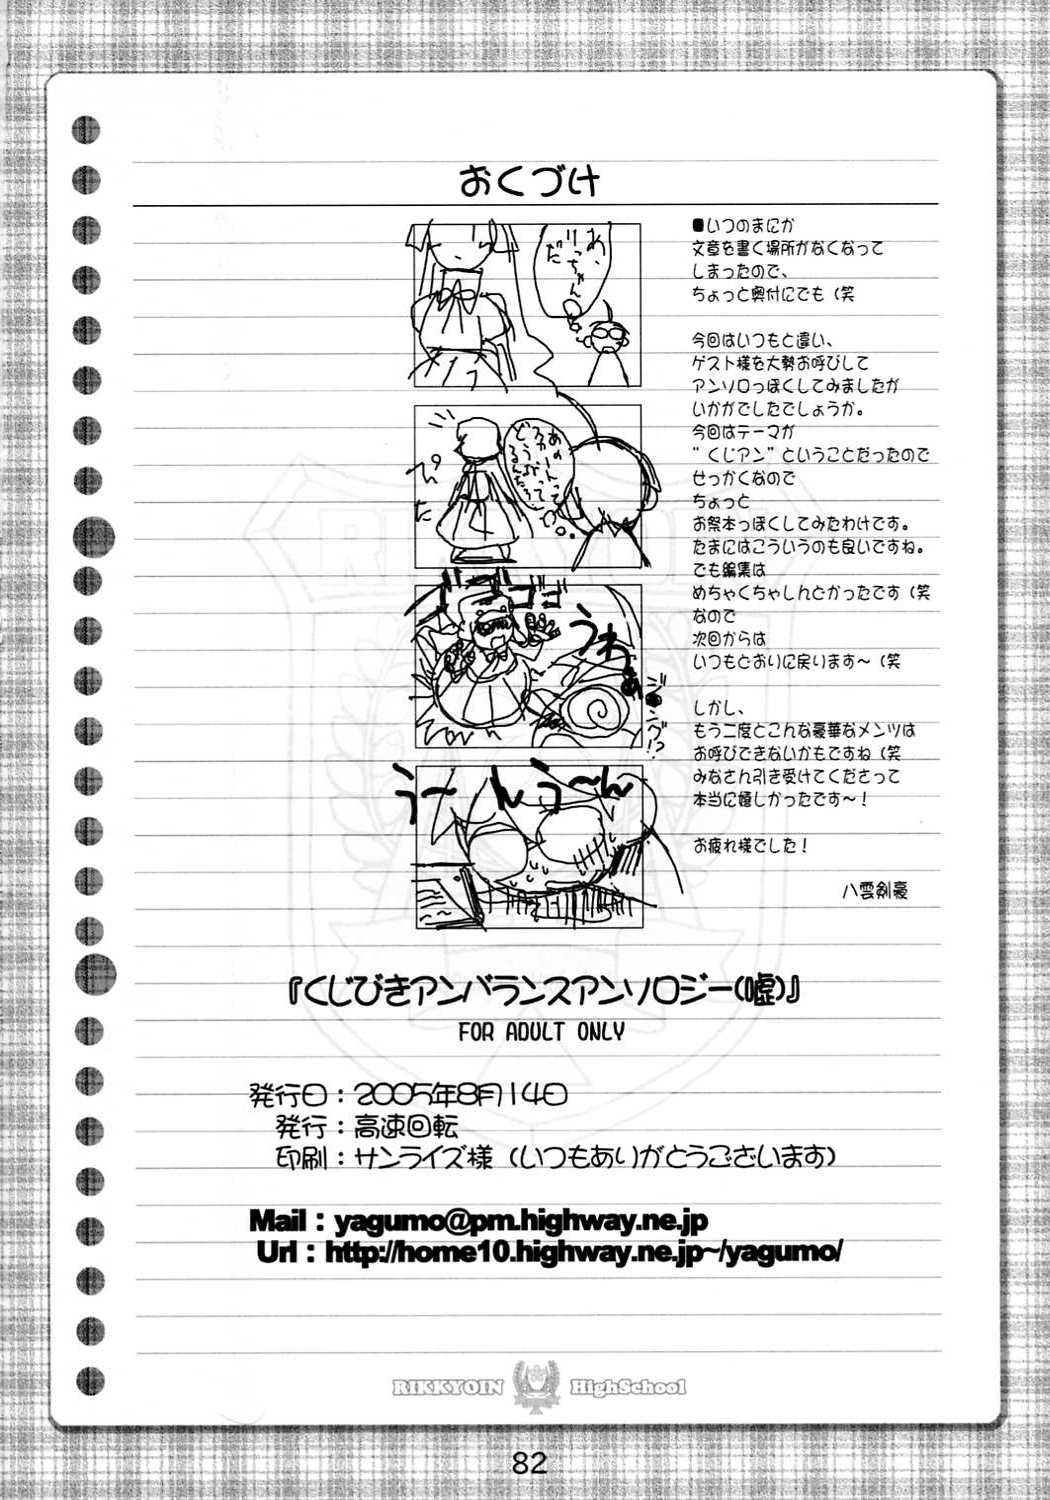 おくづけ
■いつのまにか
文章を書く場所がなくなって
しまったので、
ちょっと奥付にでも(笑
今回はいつもと違い、
ゲスト様を大勢お呼びして
アンソロっぽくしてみましたが
いかがでしたでしょうか。
今回はテーマが
"くじアン"ということだったので
せっかくなので
ちょっと
お祭本っぽくしてみたわけです。
たまにはこういうのも良いですね。
でも編集は
めちゃくちゃしんどかったです(笑
なので
次回からは
いつもどおりに戻ります〜(笑
しかし、
もう二度とこんな豪華なメンツは
お呼びできないかもですね(笑
みなさん引き受けてくださって
本当に嬉しかったです〜!
お疲れ様でした!
八雲剣豪
あ、
りっちゃん
だ
あのーんて
スカートって
どうなってる
ぴた
ゴゴゴゴ
うわぁぁ
う〜んう〜ん
『くじびきアンバランスアンソロジー(嘘)』
FOR ADULT ONLY
発行日:2005年8月14日
発行:高速回転
印刷:サンライズ様(いつもありがとうございます)
Mail:yagumo@pm.highway.ne.jp
Url:http://home10.highway.ne.jp~/yagumo/
RIKKYOIN HighSchool
82